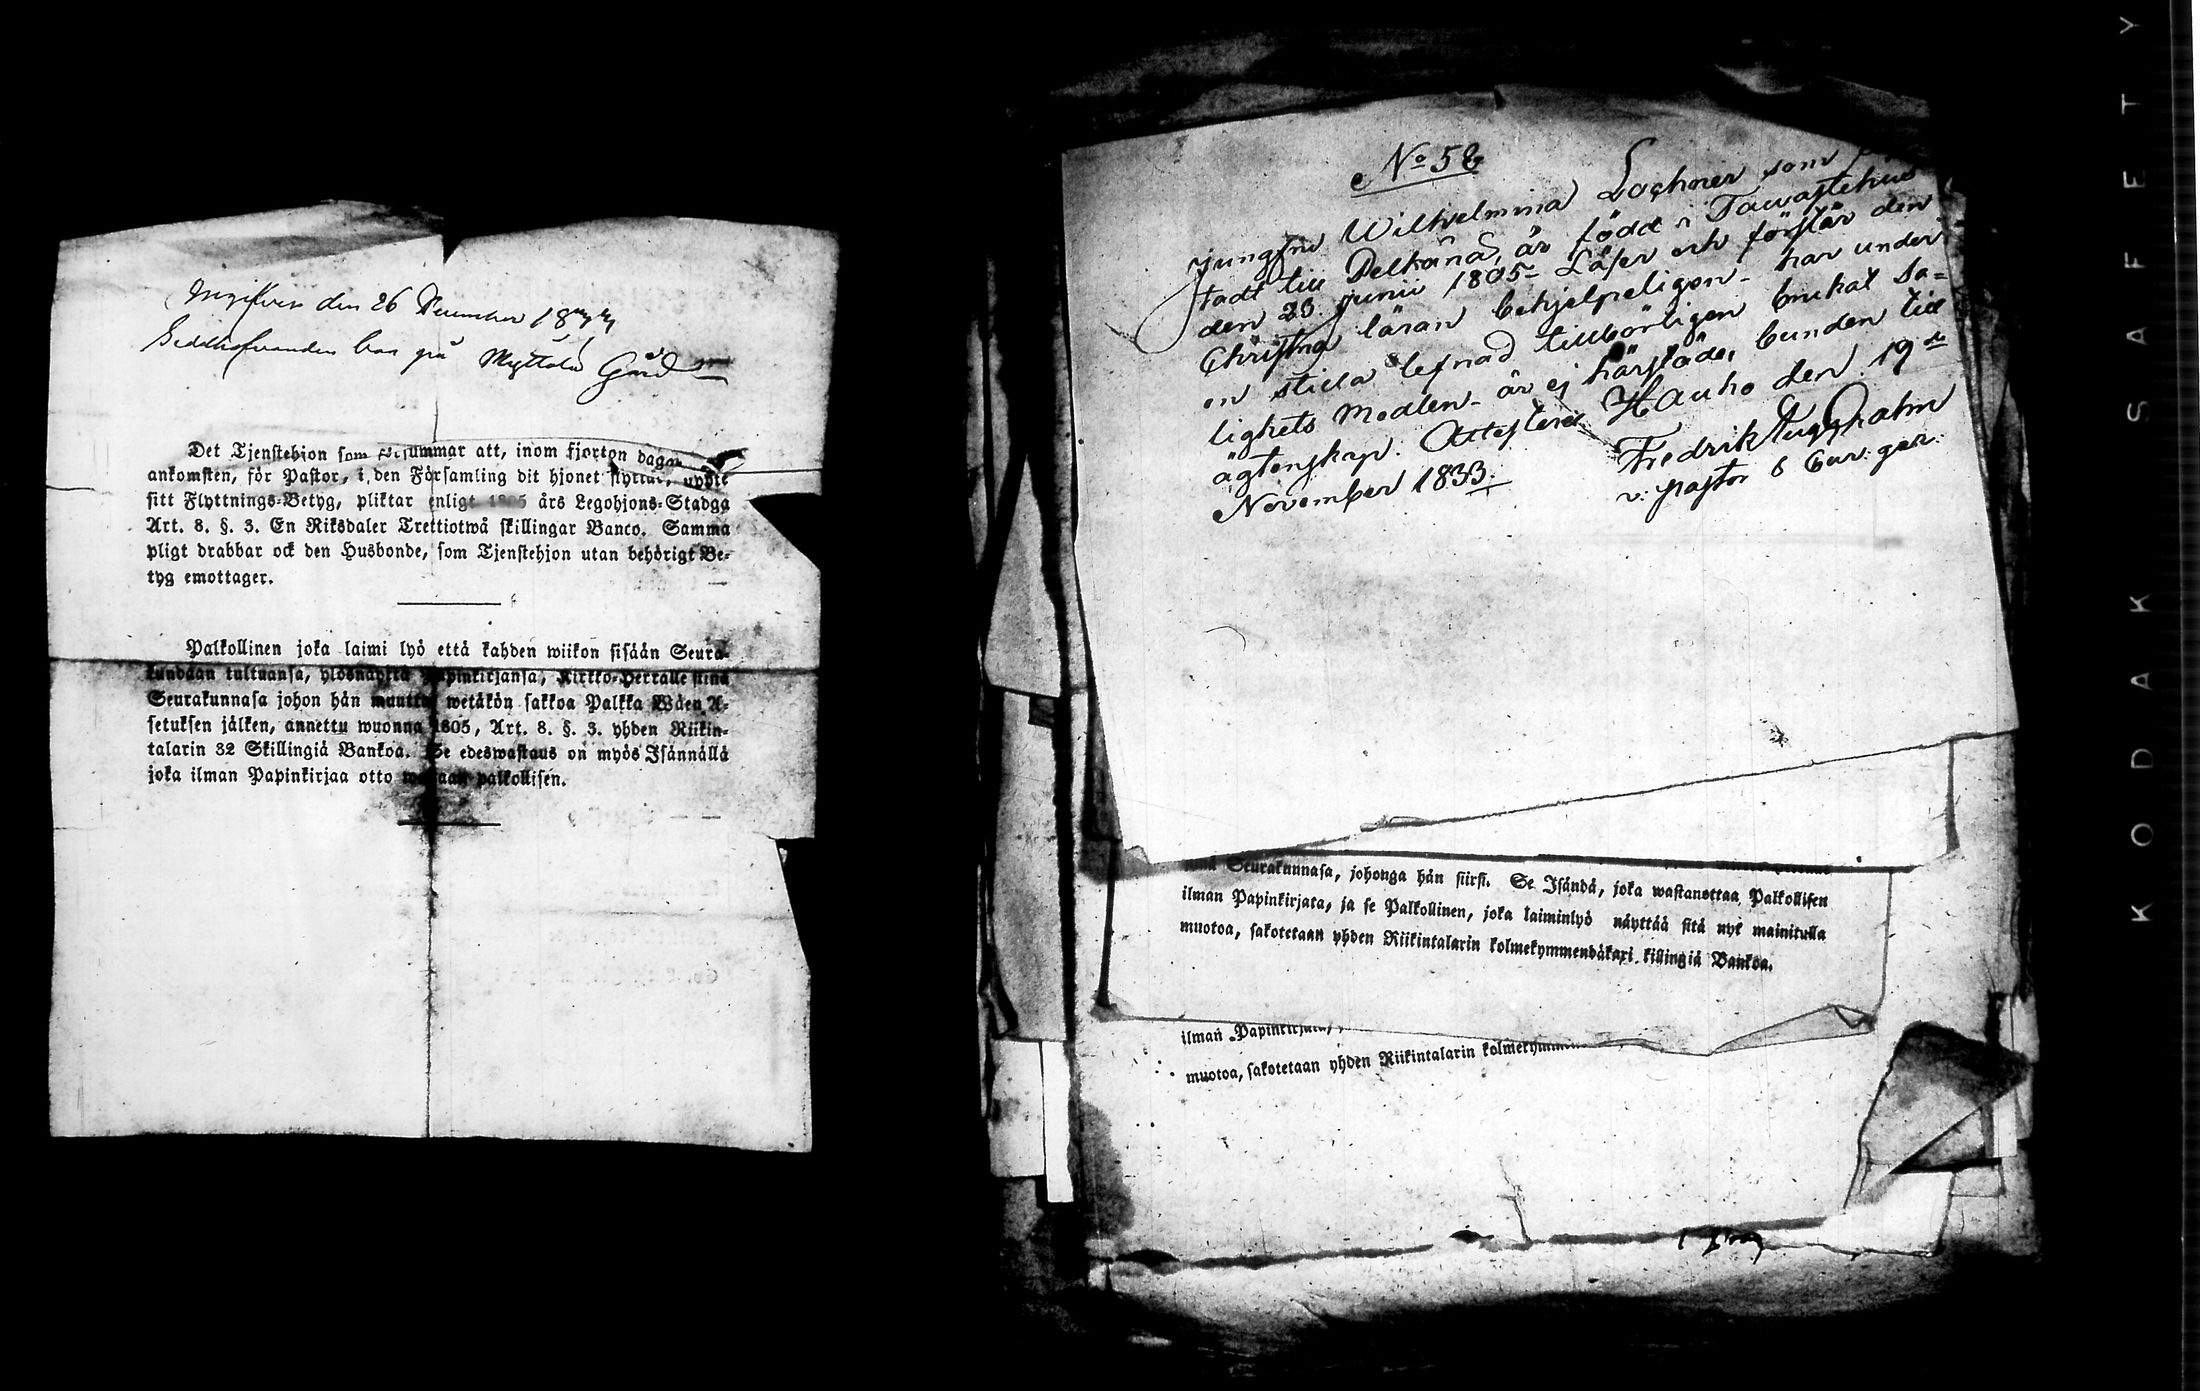 den 26 December
Boo på Gård
Det Tjenstehjon som försummar att, inom fjorton dagar
ankomsten, för Pastor, i den Församling dit hjonet flyttat, uppte
sitt Flyttnings-Betyg, pliktar enligt 1805 års Legohjons-Stadga
Art. 8. §. 3. En Riksdaler Trettiotwå skillingar Banco. Samma
pligt drabbar ock den Husbonde, som Tjenstehjon utan behörigt Be-
tyg emottager.
Palkollinen joka laimi lyö että kahden wiikon sisään Seura-
kundaan tultuansa, ylösnäyttä Papinkirjansa, Kirkko-Herralle siinä
Seurakunnasa johon hän muuttu wetäkön sakkoa Palkka Wäen A-
setuksen jälken, annettu wuonna 1805, Art. 8. §. 3. yhden Riikin-
talarin 32 Skillingiä Bankoa. Se edeswastaus on myös Isännällä
joka ilman Papinkirjaa otto palkollisen.
No 58
Jungfru Wilhelmina Lochner som
tadt till Pelkäna, är född i Tawastehus
den 23 Junii 1805 – Läser och förstår den
Christna läran behjelpeligen – har under
en stilla lefnad tillbörligen brukat Sa=
lighets Medlen – är ej härstädes bunden till
ägtenskap. Attesterar Hauho den 19de
November 1833.
Fredrik
v. pastor
Seurakunnasa, johonga hän siirsi. Se Isändä, joka wastanottaa Palkollisen
ilman Papinkirjata, ja se Palkollinen, joka laiminlyö näyttää sitä nyt mainitulla
muotoa, sakotetaan yhden Riikintalarin kolmekymmendäkaxi killingiä Bankoa.
ilman Papinkirjata,
muotoa, sakotetaan yhden Riikintalarin
KODAK SAFETY